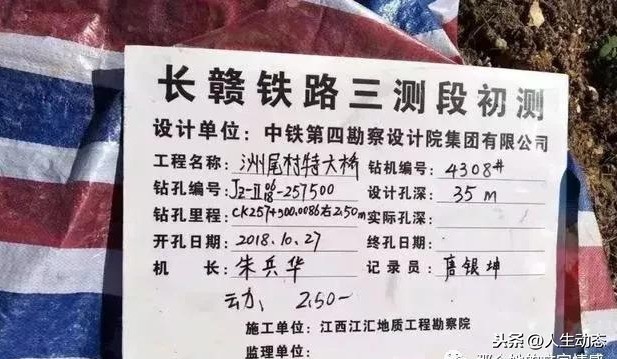 长赣铁路三测段初测
设计单位：中铁第四勘察设计院集团有限公司
工程名称：洲尾村特大桥 钻机编号：4308#
钻孔编号：Jz-Ⅱ-257500 设计孔深：35m
钻孔里程：CK257+500.0086右2.50m 实际孔深：
开孔日期：2018.10.27 终孔日期：
机 长：朱兵华 记录员：唐银坤
动、 2.50-
施工单位：江西江汇地质工程勘察院
监理单位：
头条@人生动态